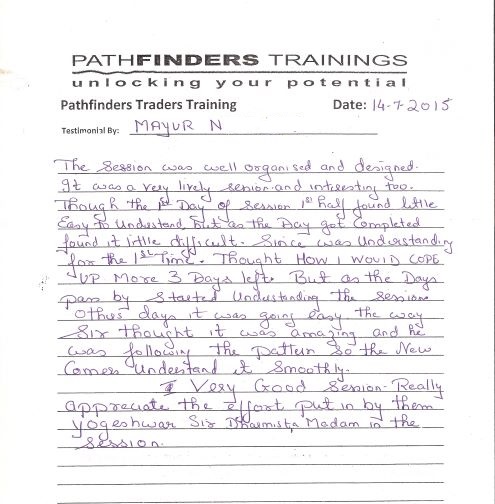 PATHFINDERS TRAININGS
unlocking your potential
Pathfinders Traders Training Date: 14-7-2015
Testimonial By: MAYUR N
The Session was well organised and designed.
It was a very lively session and interesting too.
Though the 1st Day of Session 1st half found little
Easy to Understand, but as the Day got completed
found it little difficult. Since was Understanding
for the 1st time. Thought HOW I WOULD COPE
UP More 3 Days left. But as the Days
pass by started Understanding the session
Others days it was going easy the way
Sir thought it was amazing and he
was following the pattern so the New
Comers Understand it Smoothly.
I Very Good Session. Really
appreciate the effort put in by them
Yogeshwar Sir Dharmista Madam in the
Session.